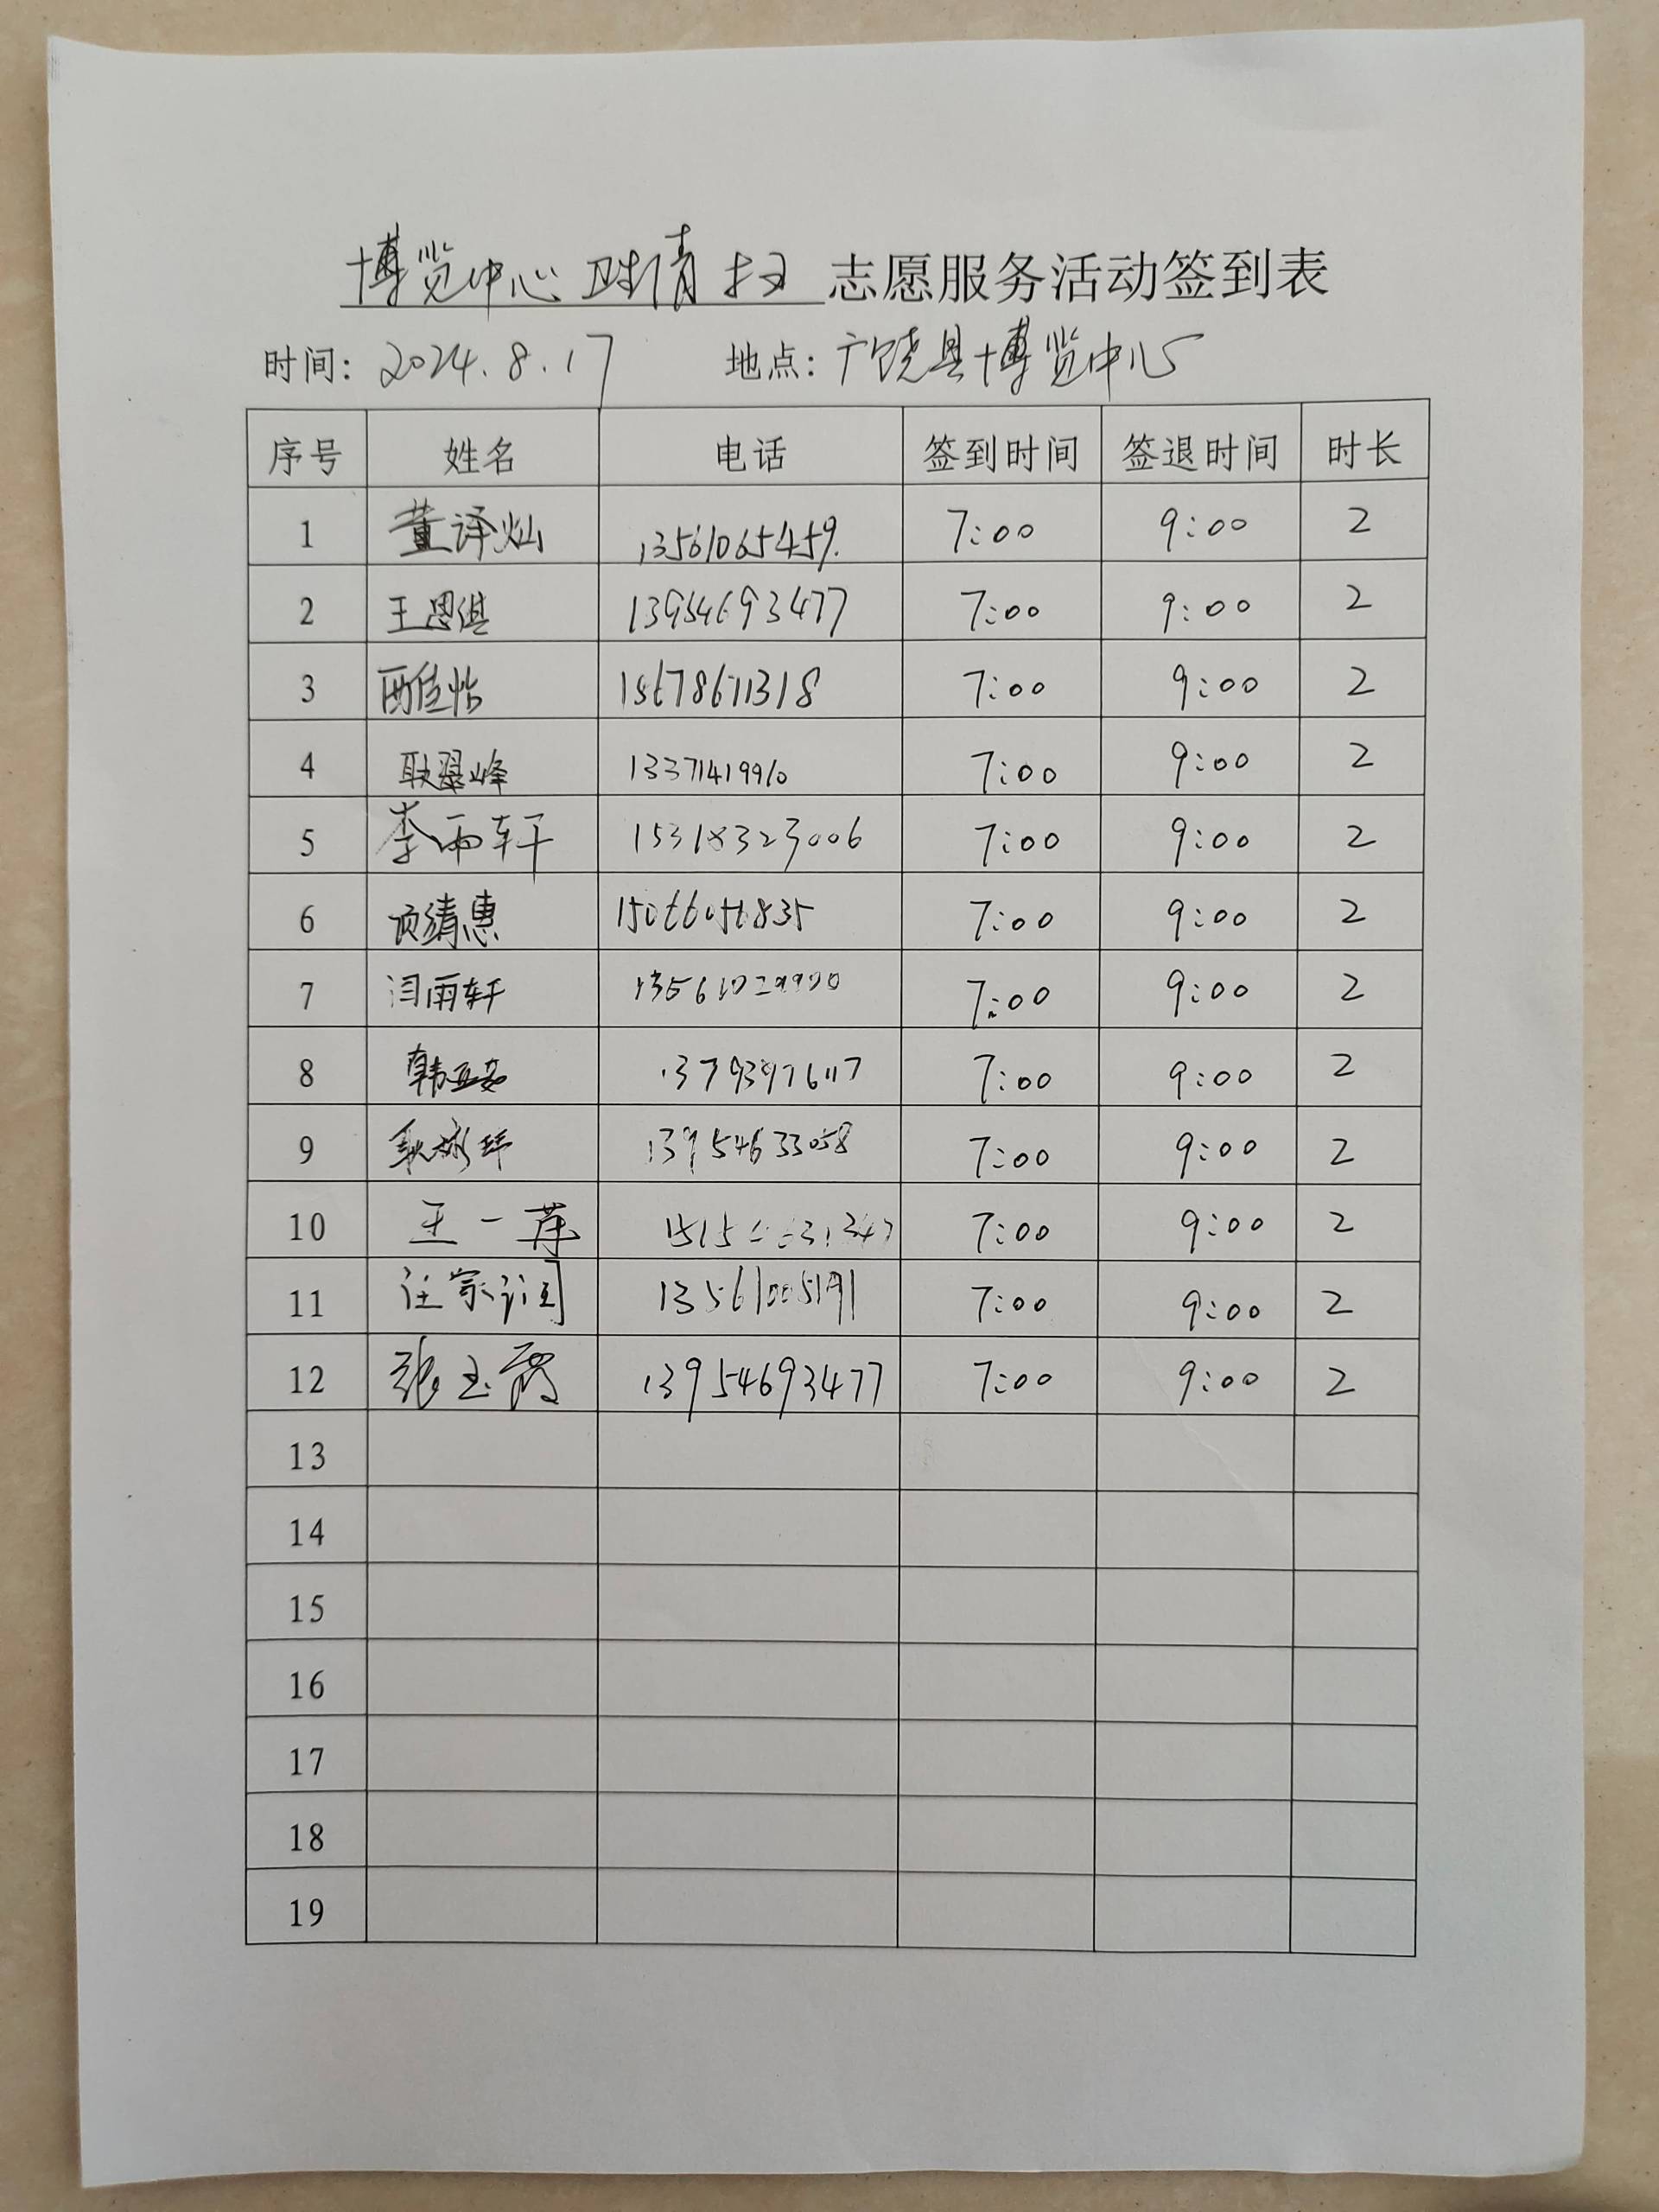 博览中心卫生清扫 志愿服务活动签到表
时间: 2024.8.17 地点: 广饶县博览中心
序号 姓名 电话 签到时间 签退时间 时长
1 董译灿 13561065459. 7:00 9:00 2
2 王思淇 13954693477 7:00 9:00 2
3 佳怡 15678671318 7:00 9:00 2
4 耿 峰 13371419910 7:00 9:00 2
5 李雨轩 15318323006 7:00 9:00 2
6 顾绮惠 15066056835 7:00 9:00 2
7 闫雨轩 7:00 9:00 2
8 韩 7:00 9:00 2
9 耿 13954633058 7:00 9:00 2
10 王一 7:00 9:00 2
11 汪宗润 13561005191 7:00 9:00 2
12 张玉霞 13954693477 7:00 9:00 2
13
14
15
16
17
18
19